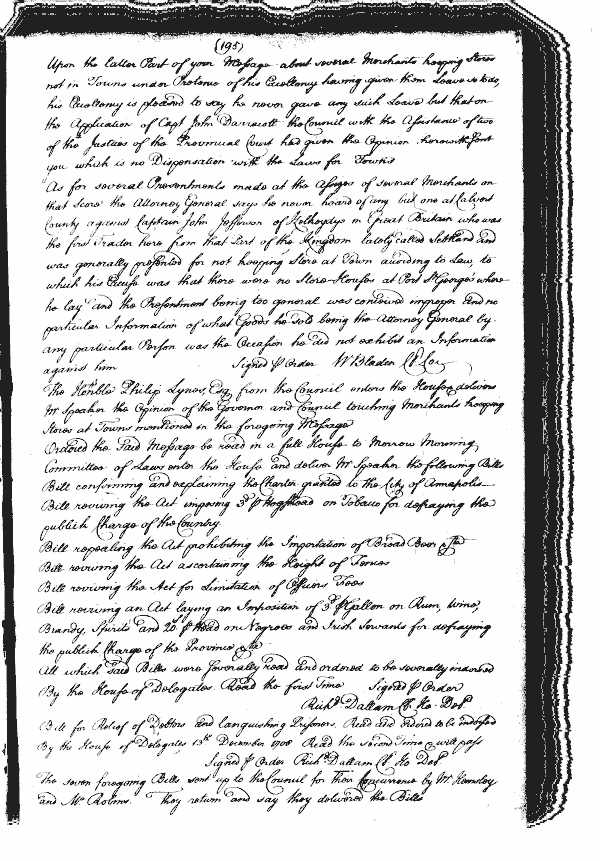 (195)
Upon the latter Part of your Message about several Merchants keeping Stores
not in Towns under Pretence of his Excellency having given them Leave so to do,
his Excellency is pleased to say he never gave any such Leave but that on
the Application of Capt John Darracott the Council with the Assistance of two
of the Justices of the Provincial Court had given the Opinion herewith sent
you which is no Dispensation with the Laws for Towns
As for several Presentments made at the Assizes of several Merchants on
that score the Attorney General says he never heard of any but one at Calvert
County against Captain John Jefferson of in Great Britain who was
the first Trader here from that Part of the Kingdom lately called Scotland and
was generally presented for not keeping Store at Town according to Law, to
which his Excuse was that there were no Store-Houses at Port St Georges where
he lay and the Presentment being too general was conceived improper and no
particular Information of what Goods he sold being the Attorney General by
any particular Person was the Occasion he did not exhibit an Information
against him Signed p Order W Bladen Cl Co
The Honble Philip Lynes, Esq from the Council enters the House, delivers
Mr Speaker the Opinion of the Governor and Council touching Merchants keeping
Stores at Towns mentioned in the foregoing Message
Ordered the said Message be read in a full House to Morrow Morning
Committee of Laws enter the House and deliver Mr Speaker the following Bills
Bill confirming and explaining the Charter granted to the City of Annapolis
Bill reviving the Act imposing 3d p Hogshead on Tobacco for defraying the
publick Charge of the Country
Bill repealing the Act prohibiting the Importation of Bread Beer &ca
Bill reviving the Act ascertaining the Height of Fences
Bill reviving the Act for Limitation of Officers Fees
Bill reviving an Act laying an Imposition of 3d p Gallon on Rum, Wine,
Brandy, Spirits and 20s p Head on Negroes and Irish Servants for defraying
the publick Charge of the Province &ca
All which said Bills were severally read and ordered to be severally indorsed
By the House of Delegates Read the first Time Signed p Order
Richd Dallam Cl Ho Delt
Bill for Relief of Debtors and languishing Prisoners. Read and ordered to be indorsed
By the House of Delegates 13th December 1708 Read the second Time & will pass
Signed p Order Richd Dallam Cl Ho Delt
The seven foregoing Bills sent up to the Council for their Concurrence by Mr Hemsley
and Mr Robins. They return and say they delivered the Bills